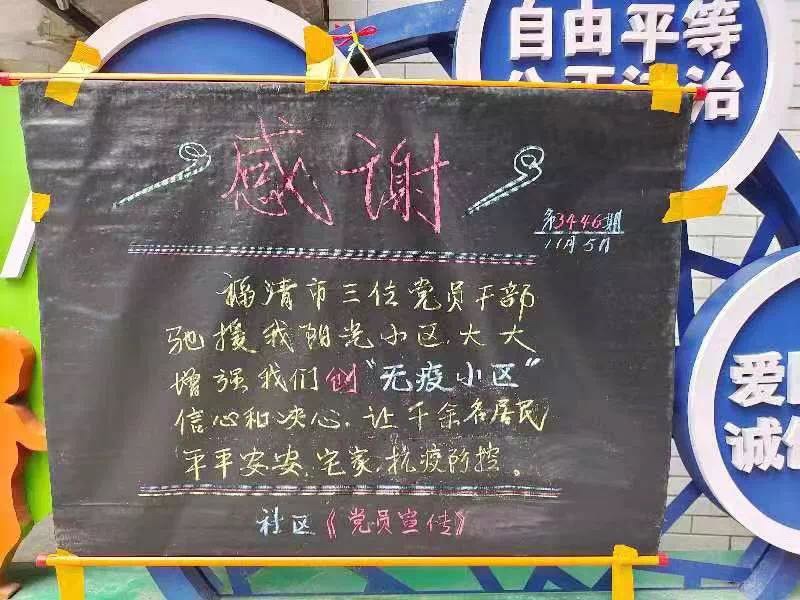 自由平等
治
感谢
第3446期
11月5日
福清市三位党员干部
驰援我阳光小区,大大
增强我们创“无疫小区”
信心和决心,让千余名居民
平平安安,宅家,抗疫防控。
社区《党员宣传》
爱
诚信